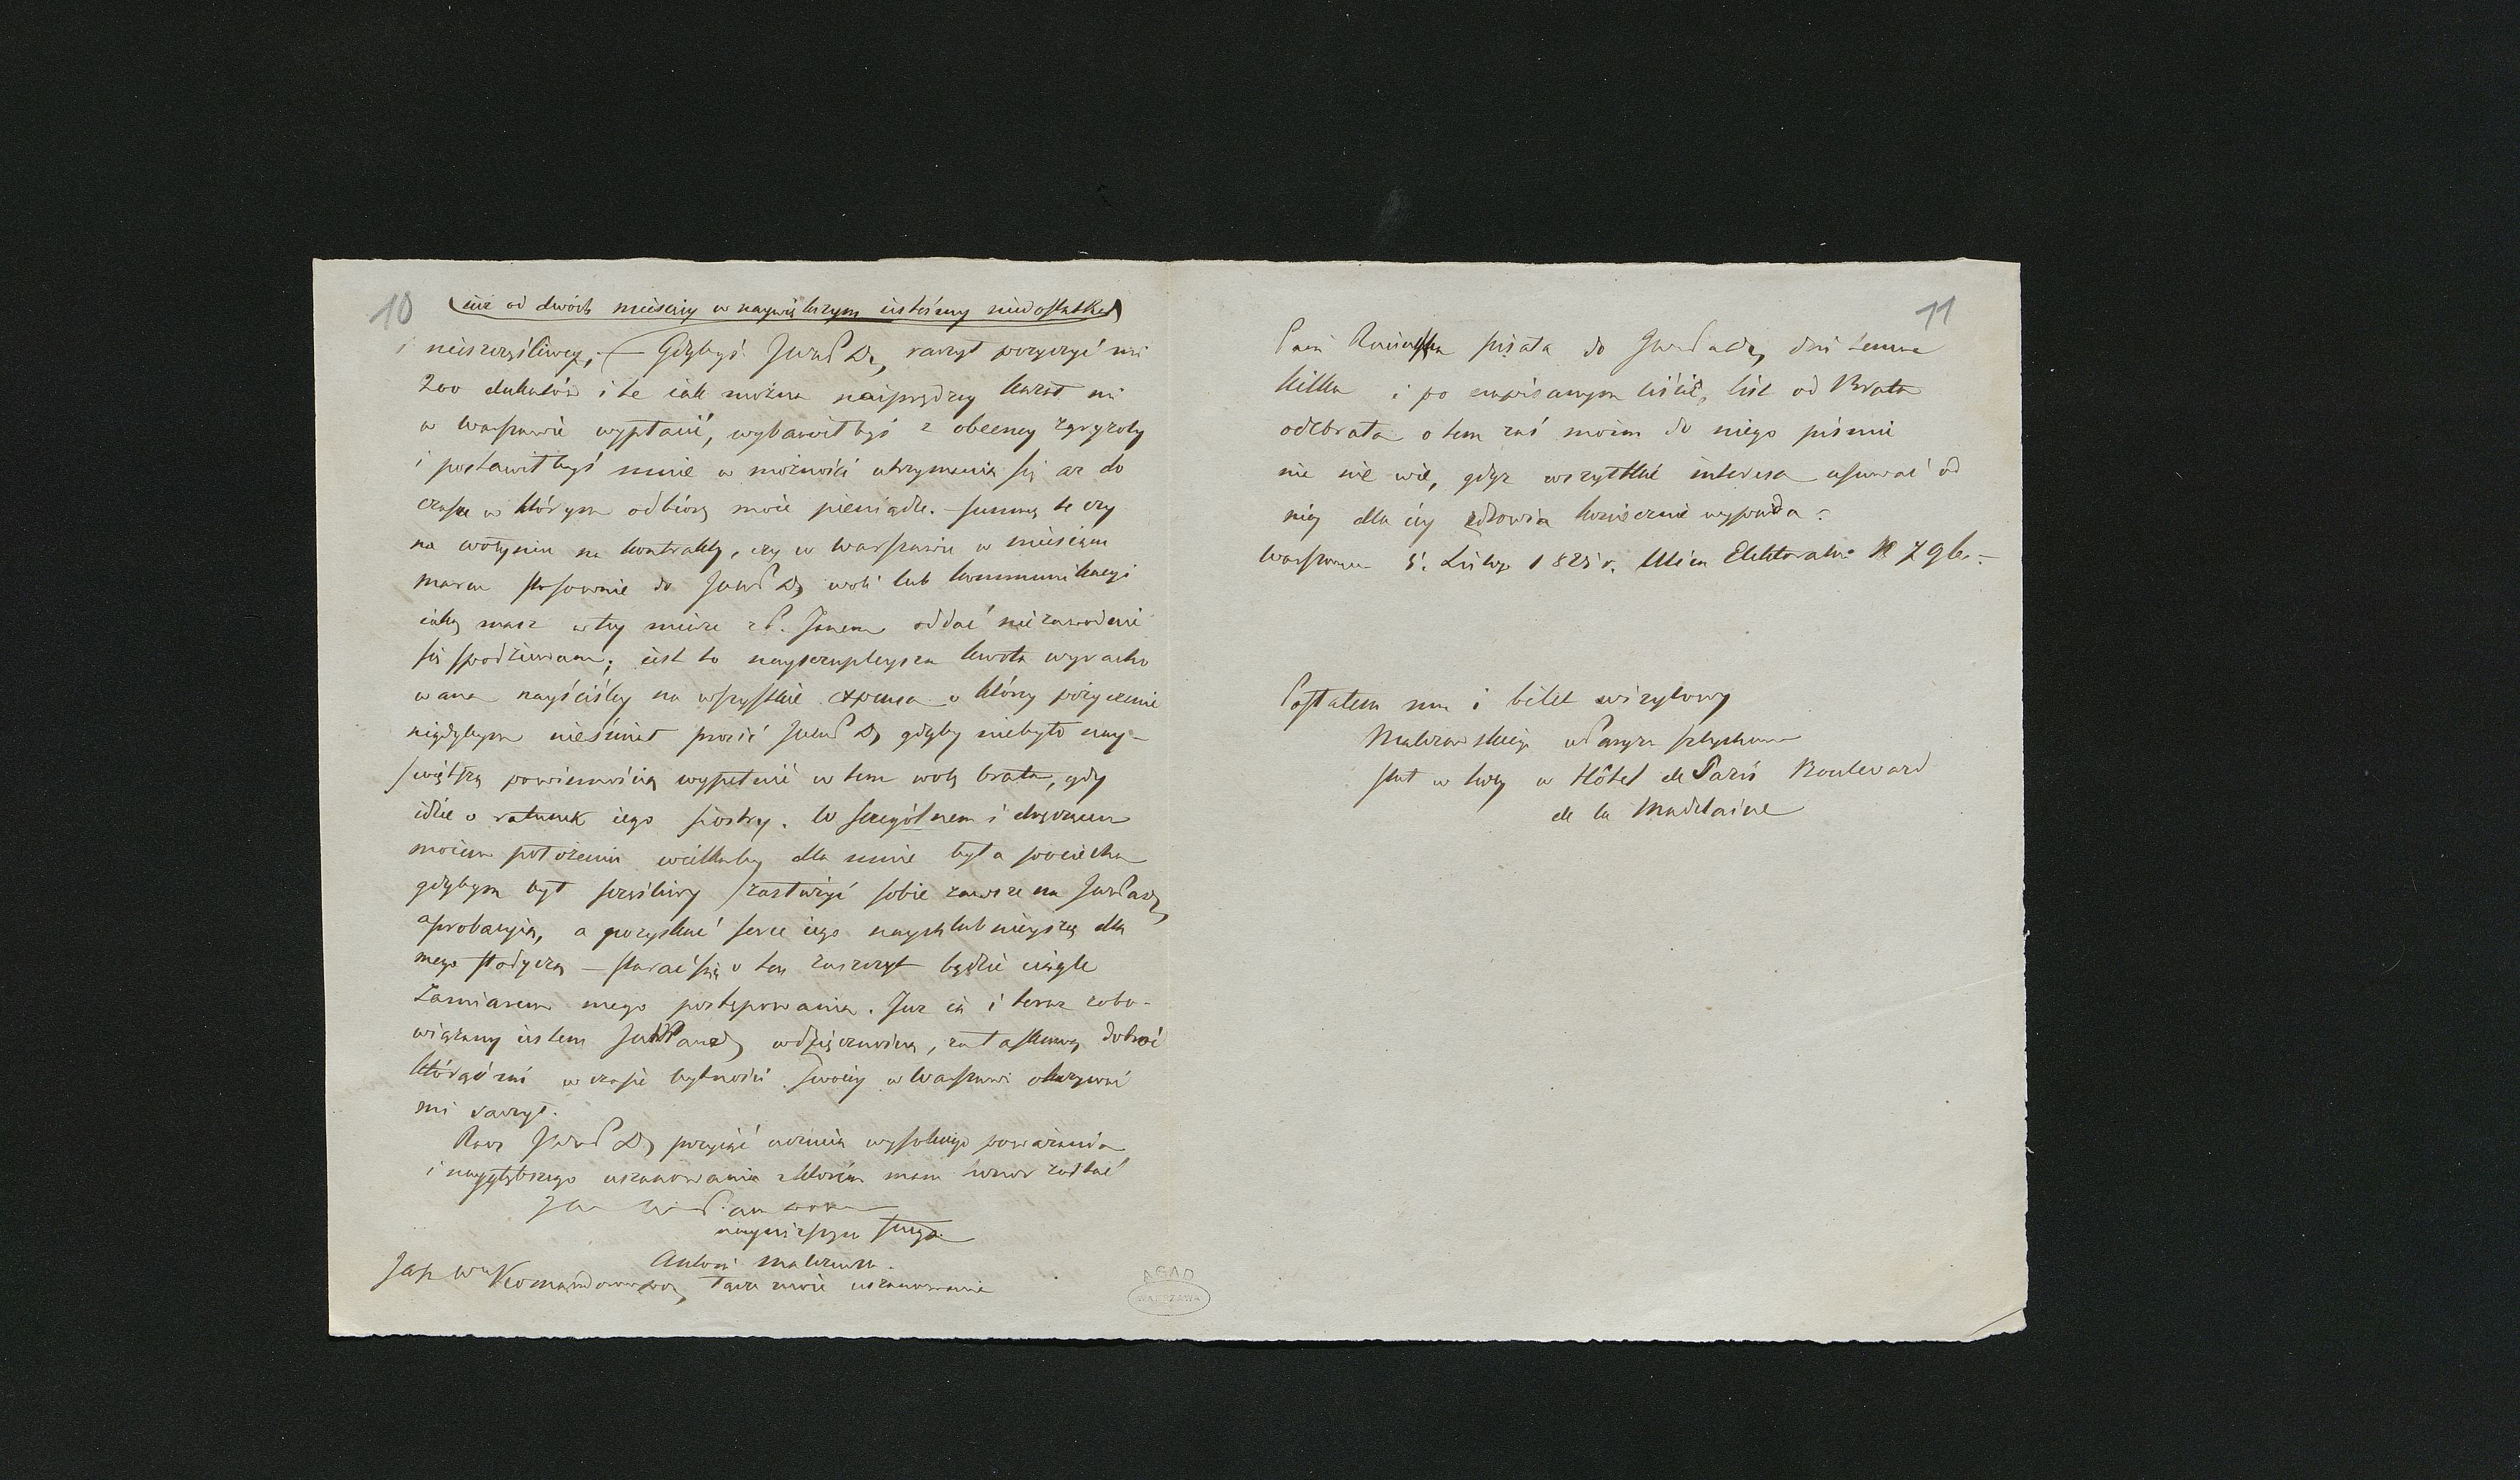 10
już od dwóch miesięcy w naywiększym iesteśmy niedostatku
i nieszczęśliwcy, — Gdybyś JWWP Dz, raczył pożyczyć mi
200 dukatów i te iak można naiprędzey kazał mi
w Warszawie wypłacić, wybawiłbyś z obecney zgryzoty
i postawiłbyś mnie w możności utrzymania się aż do
czasu w którym odbiorę moie pieniądze. – summę te czy
na wołyniu na kontrakty, czy w Warszawie w miesiącu
marcu stosownie do JWWP Dz woli lub kommunikacyi
iaką masz w tey mierze z P. Janem oddać niezawodnie
się spodziewam; iest to nayszczupleysza kwota wyracho
wana nayściśley na wszystkie expensa o którey pożyczenie
nigdybym nieśmiał prosić JWWP Dz gdyby niebyło nay-
świętszą powinnością wypełnić w tem wolę brata, gdy
idzie o ratunek iego siostry. W szczególnem i dręczącem
moiem położeniu wielkaby dla mnie była pociecha
gdybym był szczęśliwy zasłużyć sobie zawsze na
aprobacyią, a pozyskać serce iego naychlubnieyszą dla
mego słodyczą – starać się o ten zaszczyt będzie ciągle
zamiarem mego postępowania. Już ia i teraz zobo-
wiązany iestem wdzięcznością, za łaskawą dobroć
którąś mi w czasie bytności swoiey w Warszawie okazywać
mi raczył.
Racz JWWP Dz przyiąć uczucia wysokiego poważania
i naygłębszego uszanowania z którem mam honor zostać
nayniższym sługą
Antoni Malczewski.
łączę moie uszanowanie
AGAD
WARSZAWA
11
Pani Rucińska pisała do dni temu
kilka i po napisanym liście, list od Brata
odebrała o tem zaś moim do niego piśmie
nic nie wie, gdyż wszystkie interesa usuwać od
niey dla iey zdrowia koniecznie wypada.
Warszawa 5. Lutego 1825 r. Ulica Elektoralna N 796. –
Posłałem mu i bilet wizytowy
Malczewskiego w Paryżu sztychem
stał w tedy w Hôtel de Paris Boulevard
de la Madelaine